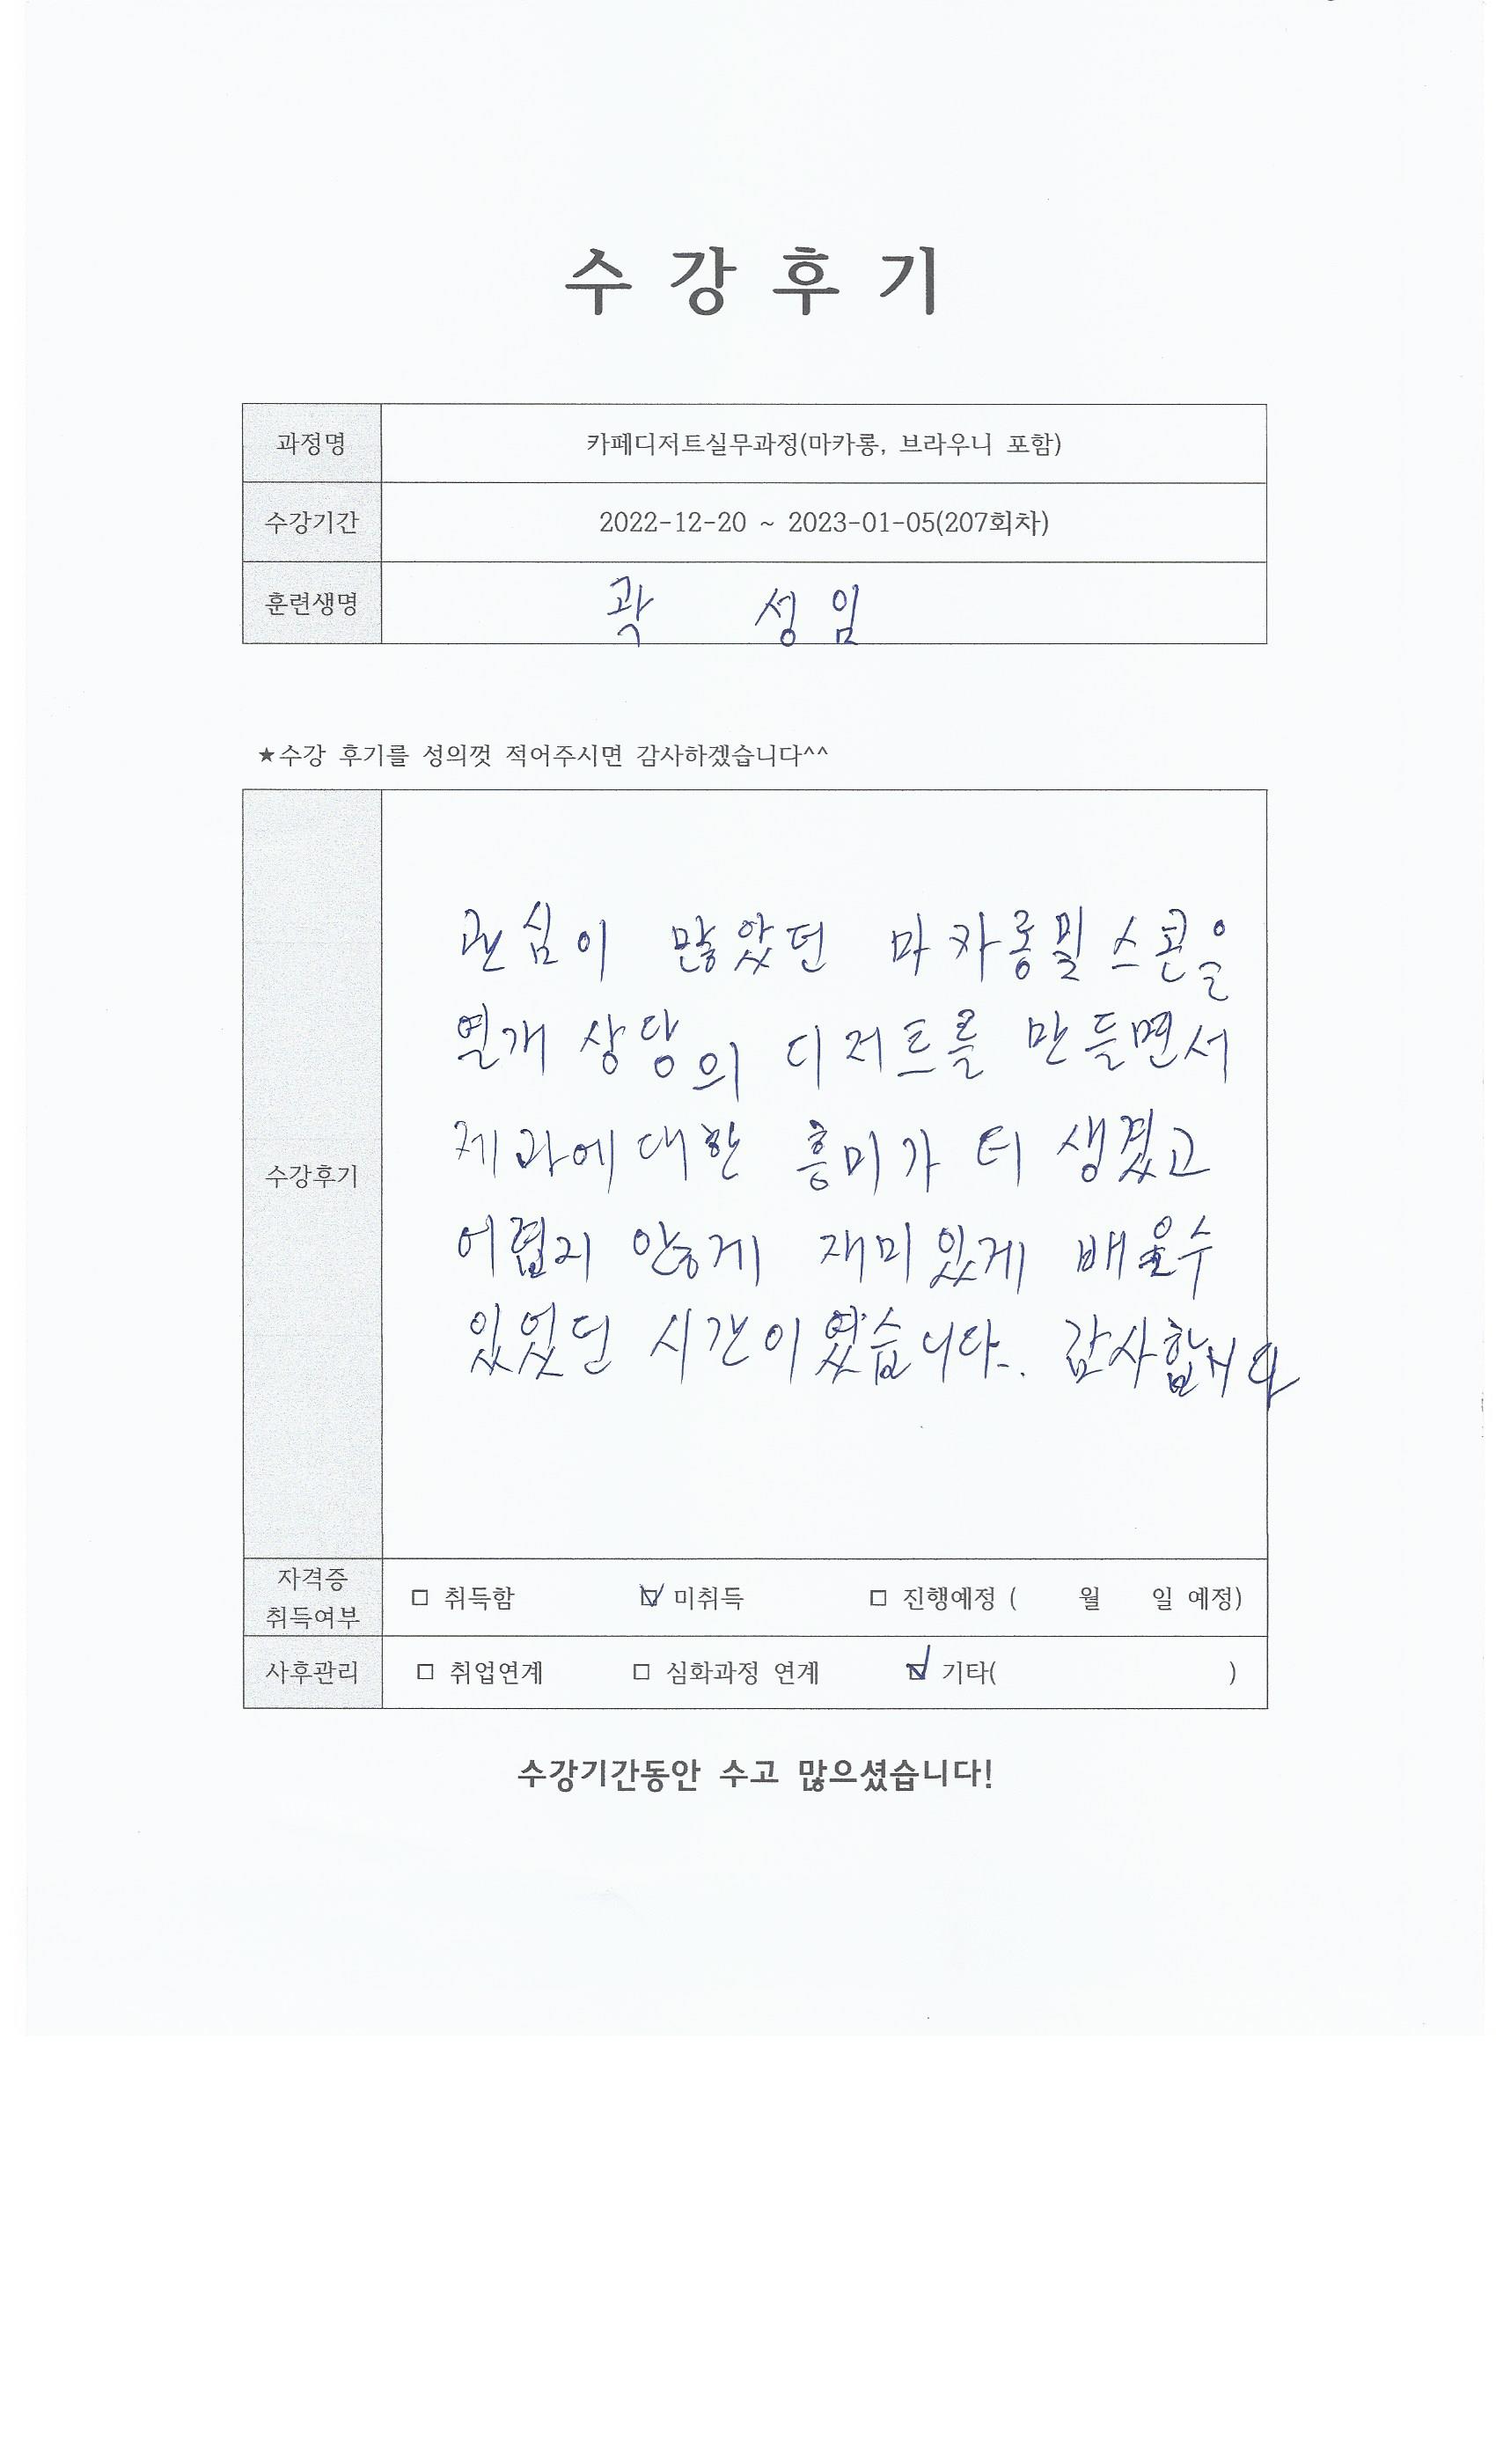 수 강 후 기
과정명 카페디저트실무과정(마카롱, 브라우니 포함)
수강기간 2022-12-20 ~ 2023-01-05(207회차)
훈련생명 곽 성임
★수강 후기를 성의껏 적어주시면 감사하겠습니다^^
수강후기
관심이 많았던 마카롱및 스콘을
열개 상당의 디저트를 만들면서
제과에 대한 흥미가 더 생겼고
어렵지 안흥게 재미있게 배울수
있었던 시간이였습니다.. 감사합니다
자격증 취득여부 □ 취득함 ☑ 미취득 □ 진행예정 ( 월 일 예정)
사후관리 □ 취업연계 □ 심화과정 연계 ☑ 기타( )
수강기간동안 수고 많으셨습니다!